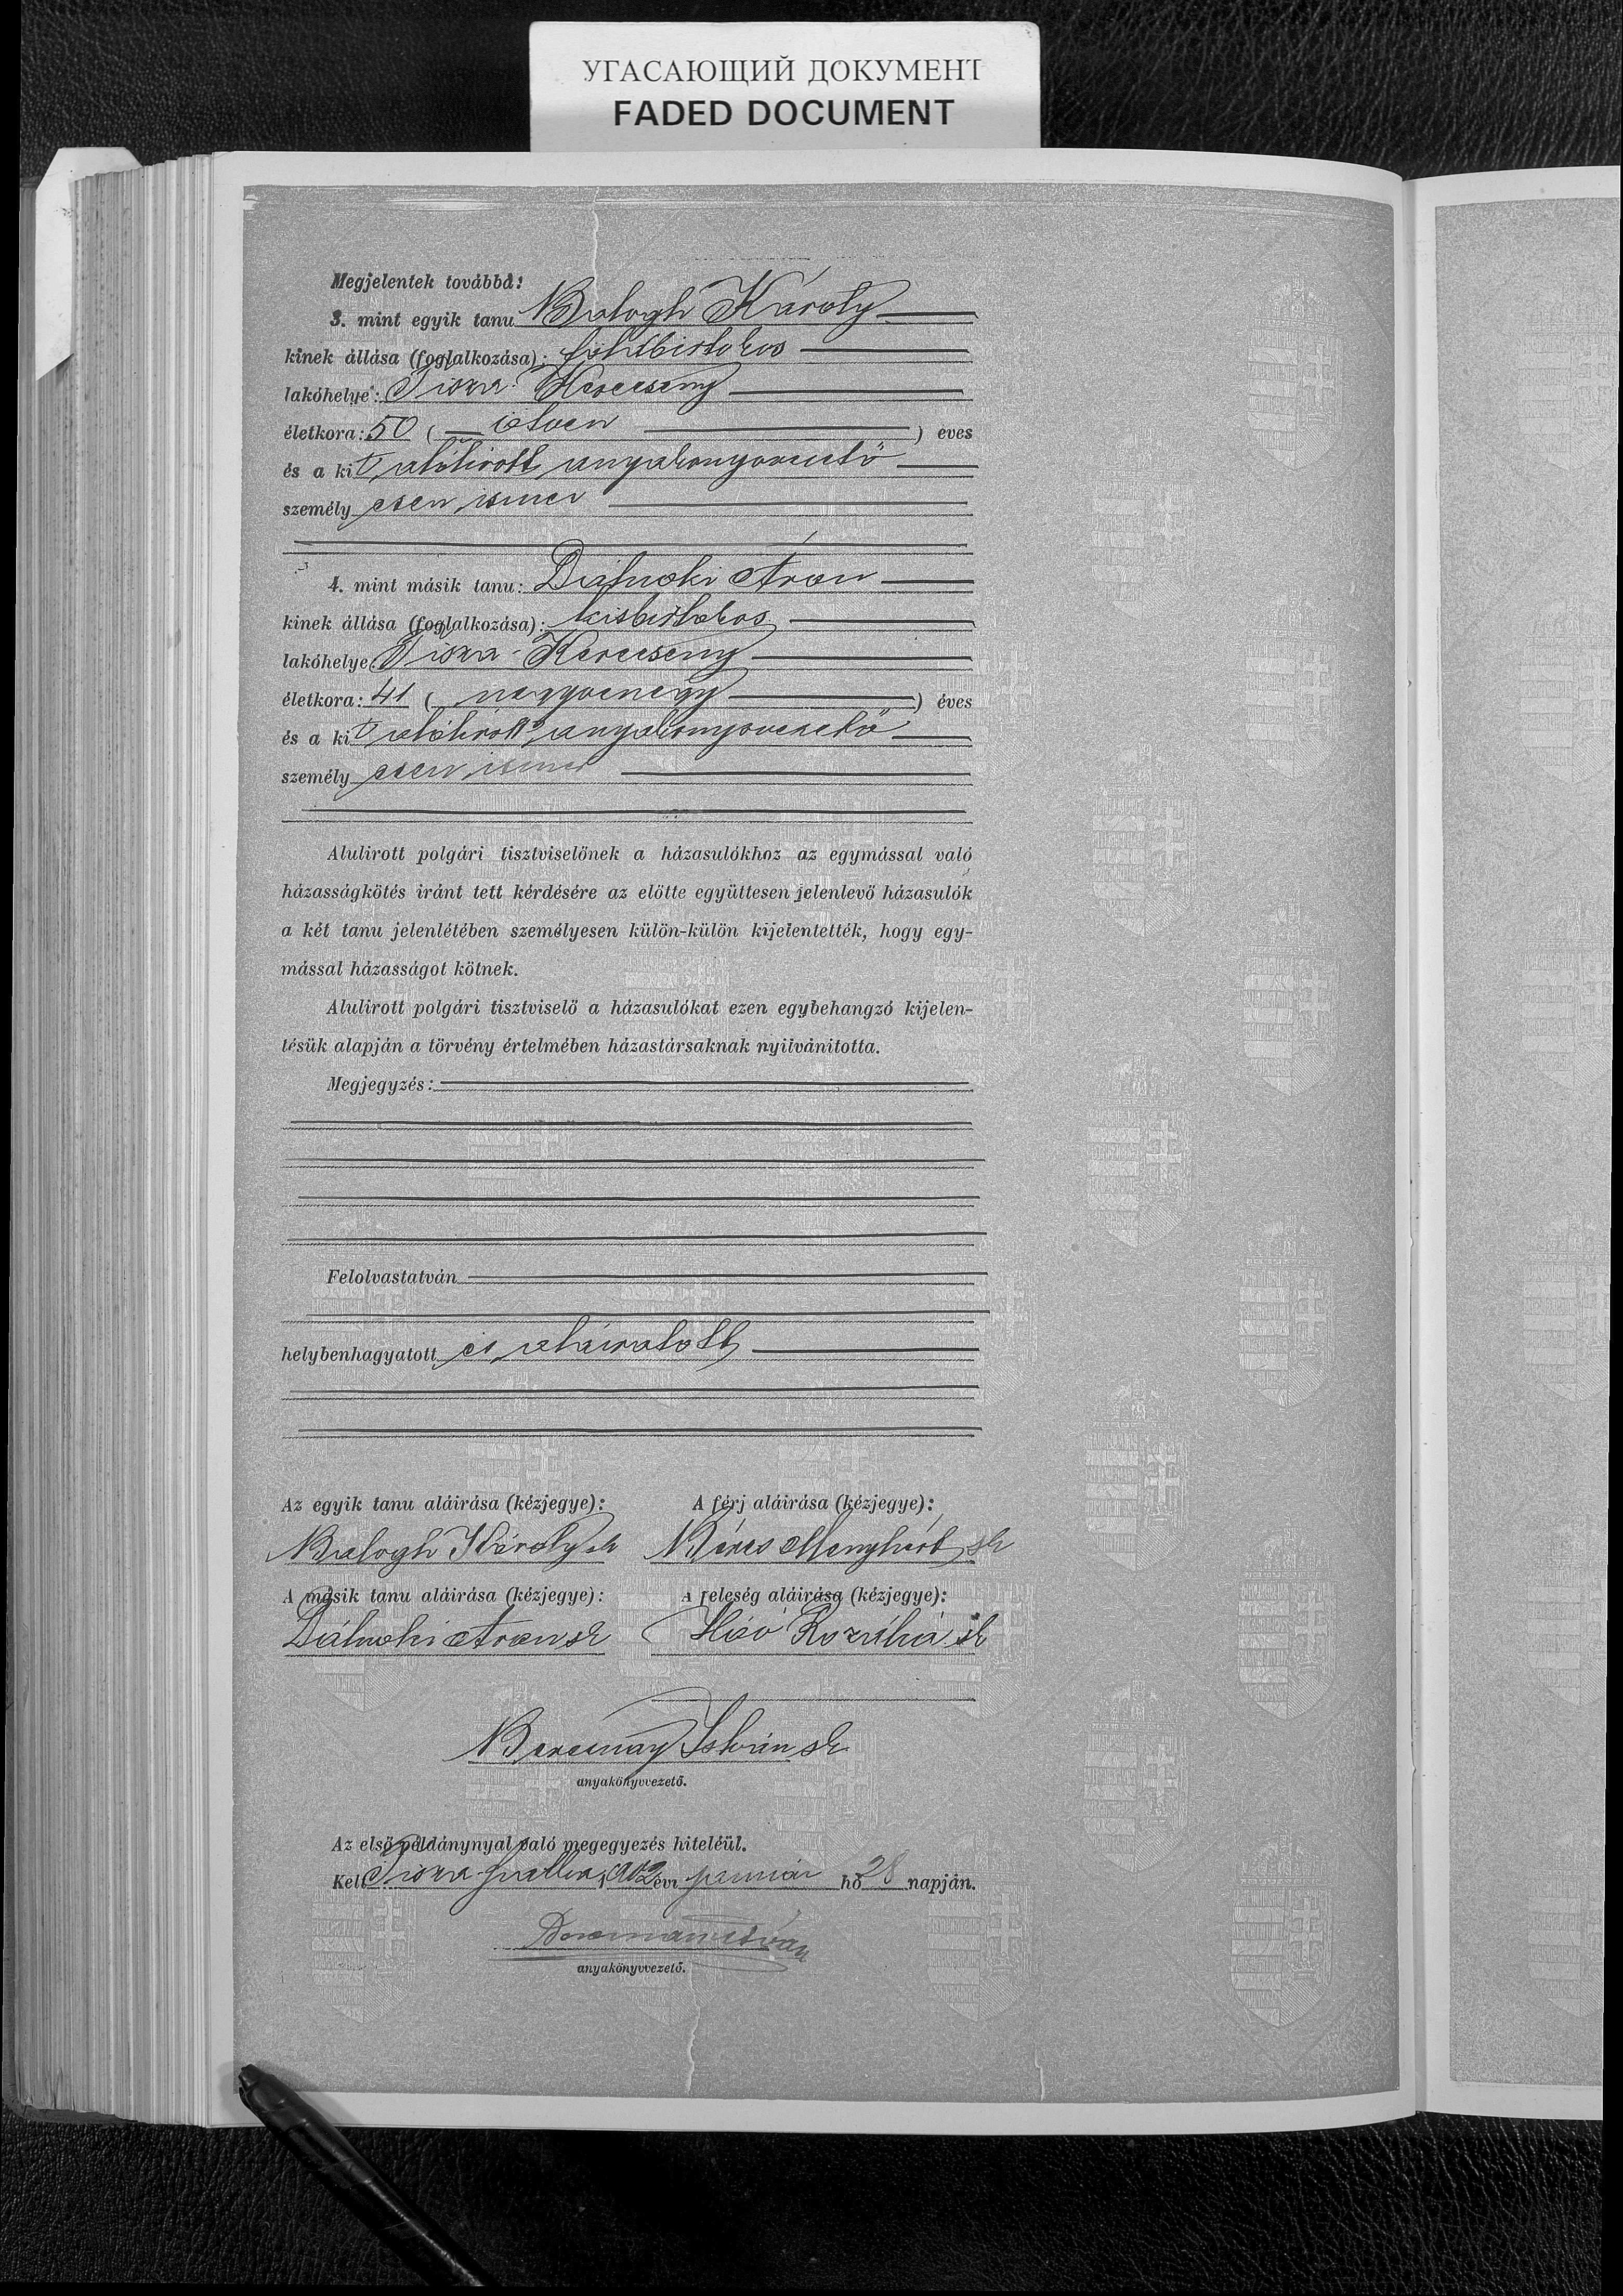 УГАСАЮЩИЙ ДОКУМЕНТ
FADED DOCUMENT
Megjelentek továbbá:
3. mint egyik tanu Balogh Károly
kinek állása (foglalkozása): földbirtokos
lakóhelye: Tisza-Kerecseny
életkora: 50 ( ötven ) éves
és a ki t alólirott anyakönyvvezető
személy esen ismer
4. mint másik tanu: Dálnoki Áron
kinek állása (foglalkozása): kisbirtokos
lakóhelye: Tisza-Kerecseny
életkora: 41 ( negyvenegy ) éves
és a ki t alólirott anyakönyvvezető
személy esen ismer
Alulirott polgári tisztviselőnek a házasulókhoz az egymással való
házasságkötés iránt tett kérdésére az előtte együttesen jelenlevő házasulók
a két tanu jelenlétében személyesen külön-külön kijelentették, hogy egy-
mással házasságot kötnek.
Alulirott polgári tisztviselő a házasulókat ezen egybehangzó kijelen-
tésük alapján a törvény értelmében házastársaknak nyilvánitotta.
Megjegyzés:
Felolvastatván
helybenhagyatott és aláiratott
Az egyik tanu aláirása (kézjegye): A férj aláirása (kézjegye):
Balogh Károly sk Béres Menyhért sk
A másik tanu aláirása (kézjegye): A feleség aláirása (kézjegye):
Dálnoki Áron sk Rozália sk
István sk
anyakönyvvezető.
Az első példánynyal való megegyezés hiteléül.
Kelt Tisza- 1902 évi január hó 28 napján.
István
anyakönyvvezető.